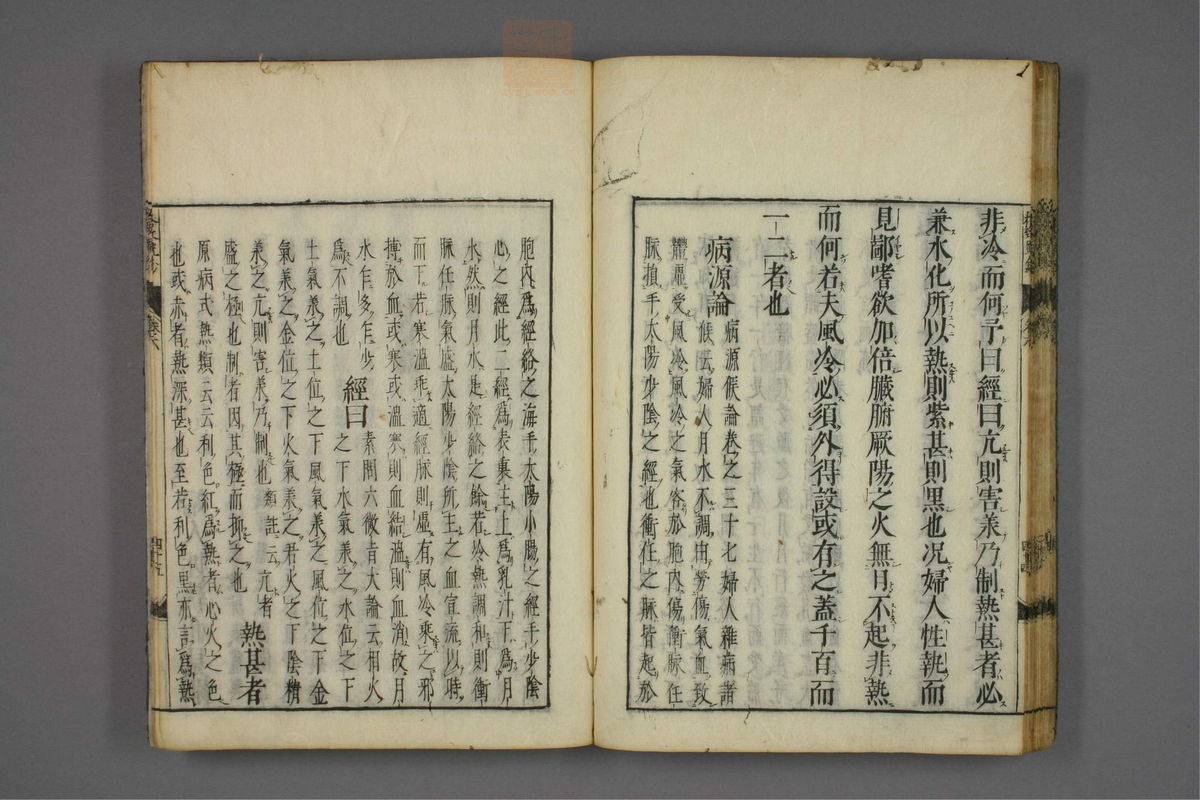 非冷而何予曰經曰亢則害美乃制熱甚者必
兼水化所以熱則紫甚則黑也况婦人性執而
見鄙嗜欲加倍臟腑厥陽之火無日不起非熱
而何若夫風冷必須外得設或有之蓋千百而
一二者也
病源論
病源候論卷之三十七婦人雜病諸
候云婦人月水不調由勞傷氣血致
體虛受風冷風冷之氣客於胞內傷衝脈任
脈損手太陽少陰之經也衝任之脈皆起於
胞內爲經絡之海手太陽小腸之經手少陰
心之經此二經爲表裏主上爲乳汁下爲月
水然則月水是經絡之餘若冷熱調和則衝
脈任脈氣盛太陽少陰所主之血宣流以時
而下若寒溫乖適經脈則虛有風冷乘之邪
搏於血或寒或溫寒則血結溫則血消故月
水乍多乍少
爲不調也
經曰
素問六微旨大論云相火
之下水氣兼之水位之下
土氣兼之土位之下風氣兼之風位之下金
氣兼之金位之下火氣兼之君火之下陰精
兼之亢則害兼乃制也
類註云亢者
盛之極也制者因其極而抑之也
熱甚者
原病式熱類云云利色紅爲熱者心火之色
也或赤者熱深甚也至若利色黑亦言爲熱
四十五